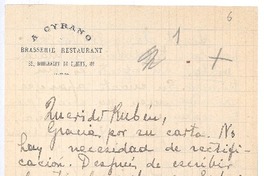 6
A CYRANO
BRASSERIE RESTAURANT
1
+
Querido Rubén,
Gracias por su carta. No
hay necesidad de rectifi-
cación. Después de escribir